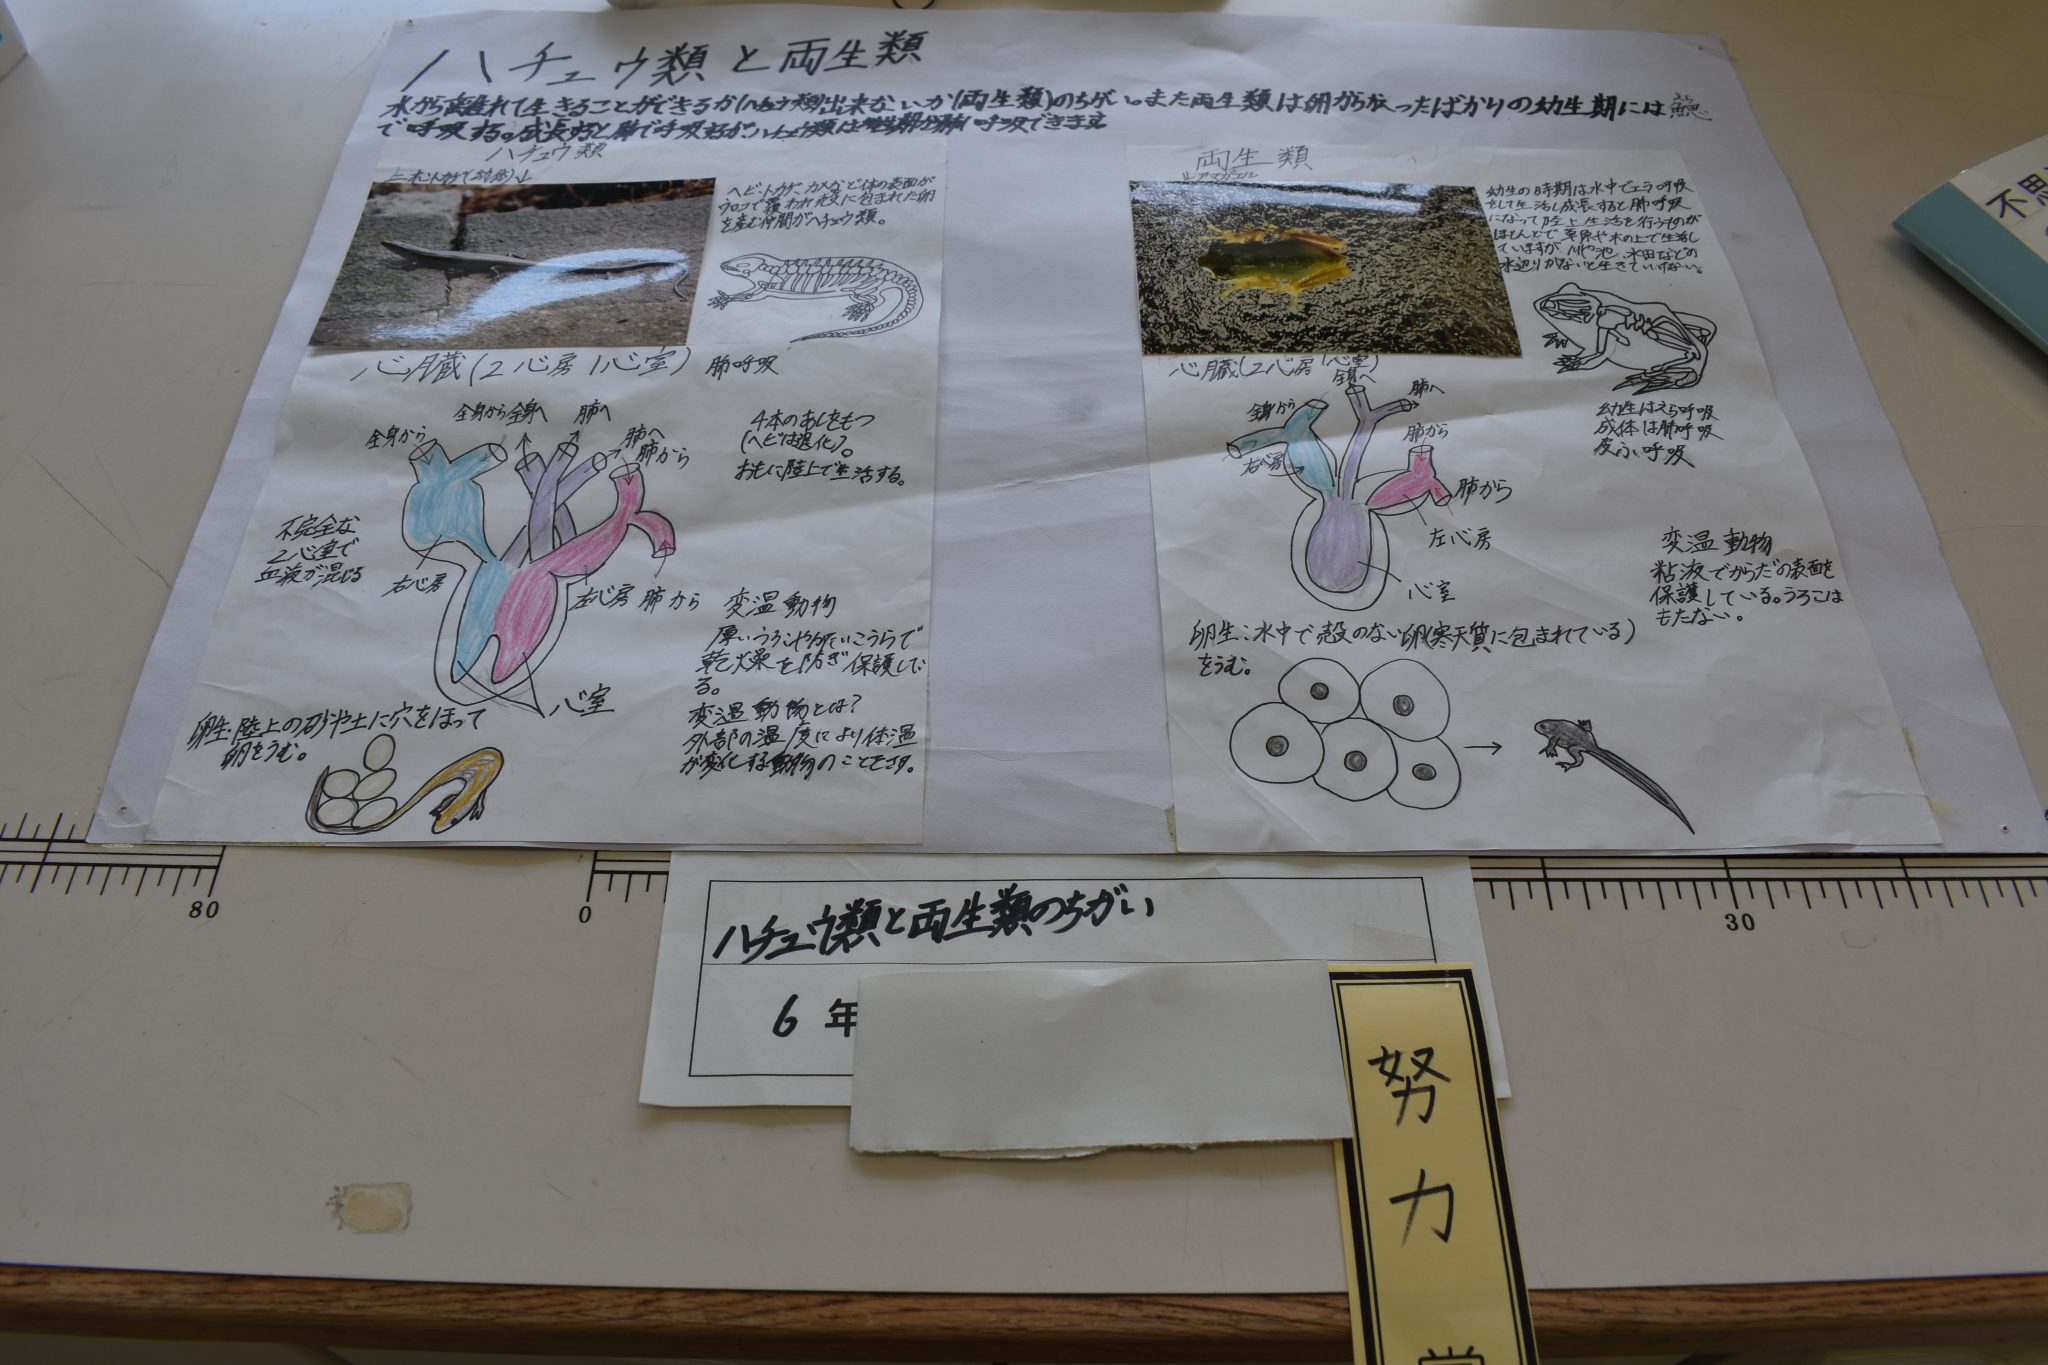 ハチュウ類と両生類
水から離れて生きることができるか(ハチュウ類)出来ないか(両生類)のちがい。また両生類は卵からかえったばかりの幼生期には鰓
で呼吸する。成長すると肺で呼吸するが、ハチュウ類は 肺呼吸できます
ハチュウ類
ニホントカゲ(幼体)↓
ヘビ、トカゲ、カメなど体の表面が
ウロコで覆われ殻に包まれた卵
を産む仲間がハチュウ類。
心臓(2心房1心室)
肺呼吸
全身から
全身から
全身へ
肺へ
肺へ
肺から
4本のあしをもつ
(ヘビは退化)。
おもに陸上で生活する。
不完全な
2心室で
血液が混じる
右心房
左心房
肺から
心室
変温動物
厚いうろこやかたいこうらで
乾燥を防ぎ保護してい
る。
変温動物とは?
外部の温度により体温
が変化する動物のことです。
卵生:陸上の砂や土に穴をほって
卵をうむ。
両生類
↓アマガエル
幼生の時期は水中でエラ呼吸
をして生活し成長すると肺呼吸
になって陸上生活を行うものが
ほとんどで草原や木の上で生活し
ていますが川や池、水田などの
水辺りがないと生きていけない。
心臓(2心房1心室)
全身から
全身へ
肺へ
肺から
肺から
右心房
左心房
心室
幼生はえら呼吸
成体は肺呼吸
皮ふ呼吸
変温動物
粘液でからだの表面を
保護している。うろこは
もたない。
卵生:水中で殻のない卵(寒天質に包まれている)
をうむ。
80
0
30
ハチュウ類と両生類のちがい
6年
努力
不思